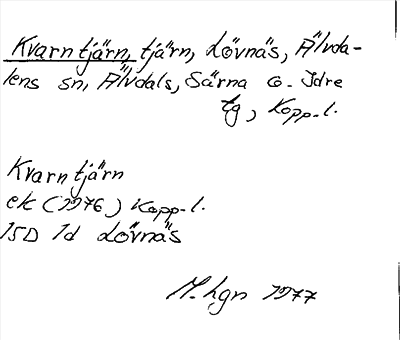 Kvarntjärn, tjärn, Lövnäs, Älvda-
lens sn, Älvdals, Särna o. Idre
tg, Kopp. l.
Kvarntjärn
ek (1976) Kopp. l.
15D 1d Lövnäs
M. hgn 1977